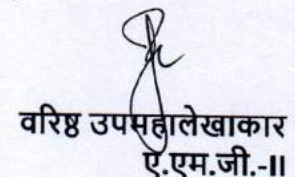 वरिष्ठ उपमहालेखाकार
ए.एम.जी.-II